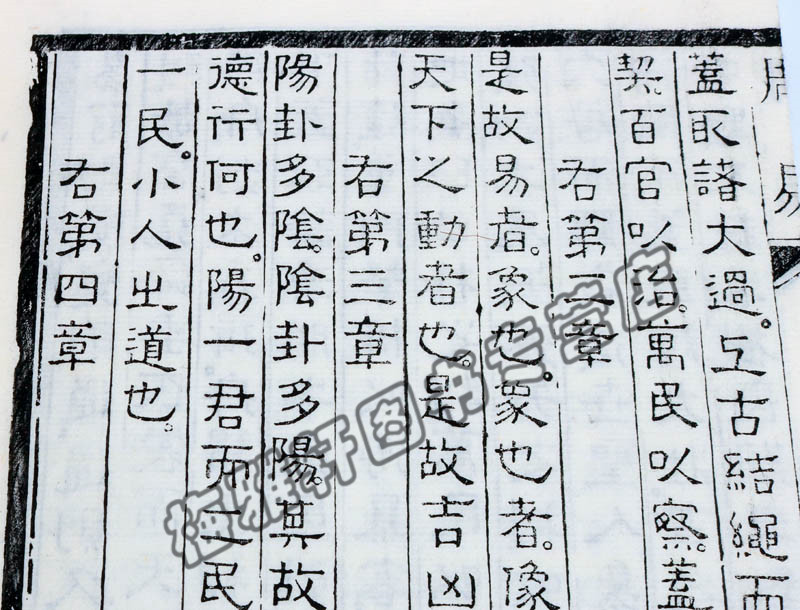 周易
蓋取諸大過。上古結繩而
契百官以治。萬民以察。蓋
右第二章
是故易者。象也。象也者。像
天下之動者也。是故吉凶
右第三章
陽卦多陰。陰卦多陽。其故
德行何也。陽一君而二民
一民。小人之道也。
右第四章
雅轩图书专营店